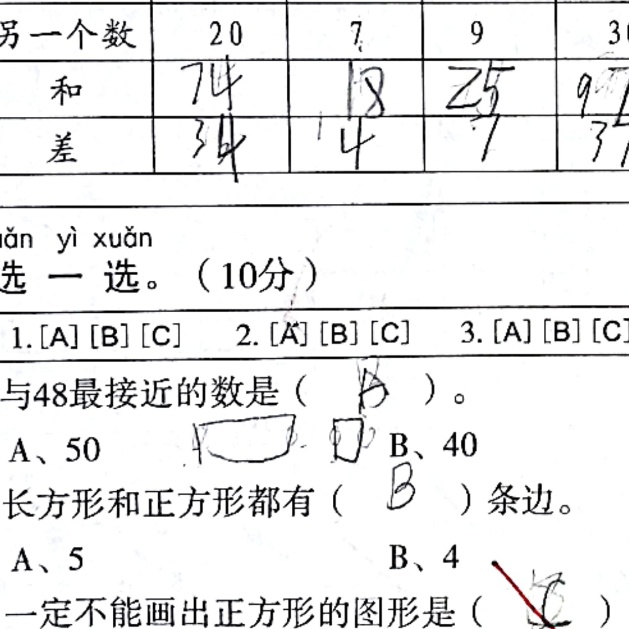 另一个数 20 7 9 30
和 74 18 25 97
差 34 4 7 37
uǎn yì xuǎn
选一选。（10分）
1.[A] [B] [C] 2.[A] [B] [C] 3.[A] [B] [C]
与48最接近的数是（ ）。
A、50 B、40
长方形和正方形都有（ B ）条边。
A、5 B、4
一定不能画出正方形的图形是（ ）